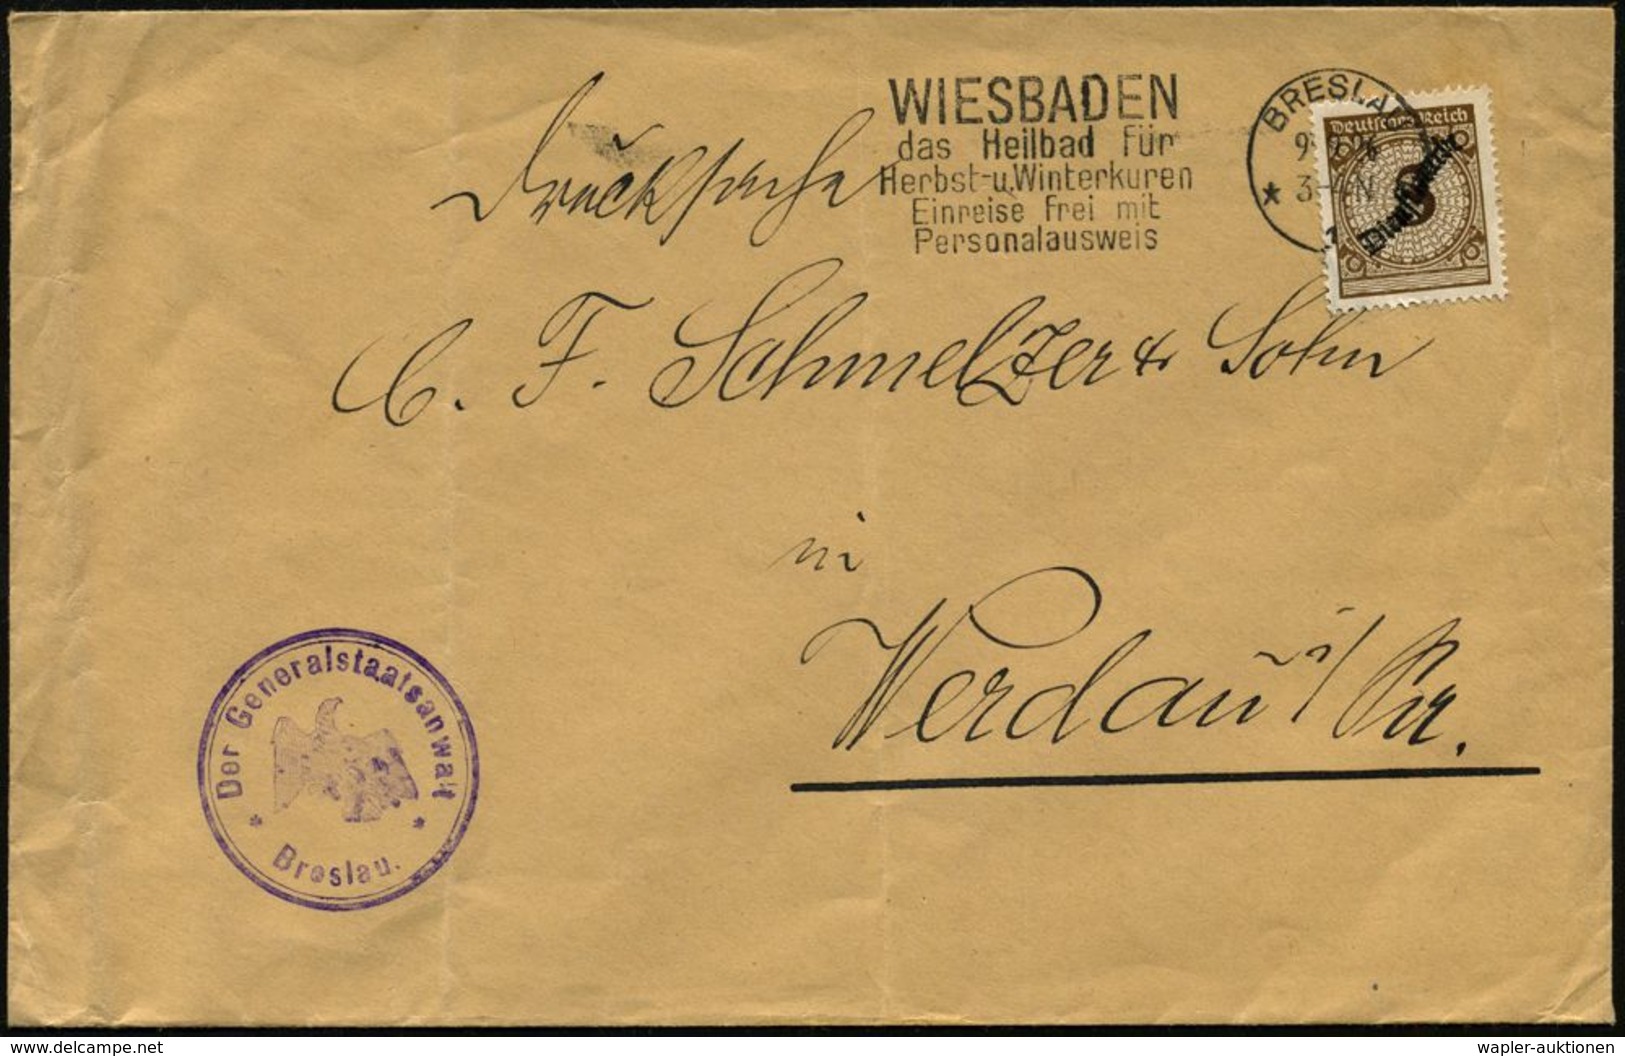 WIESBADEN
das Heilbad für
Herbst- u. Winterkuren
Einreise frei mit
Personalausweis
BRESLAU
Deutsches Reich
3
Drucksache
C. F. Schmelzer & Sohn
in
Werdau i/
Der Generalstaatsanwalt
* Breslau. *
delcampe.net
wapler-auktionen